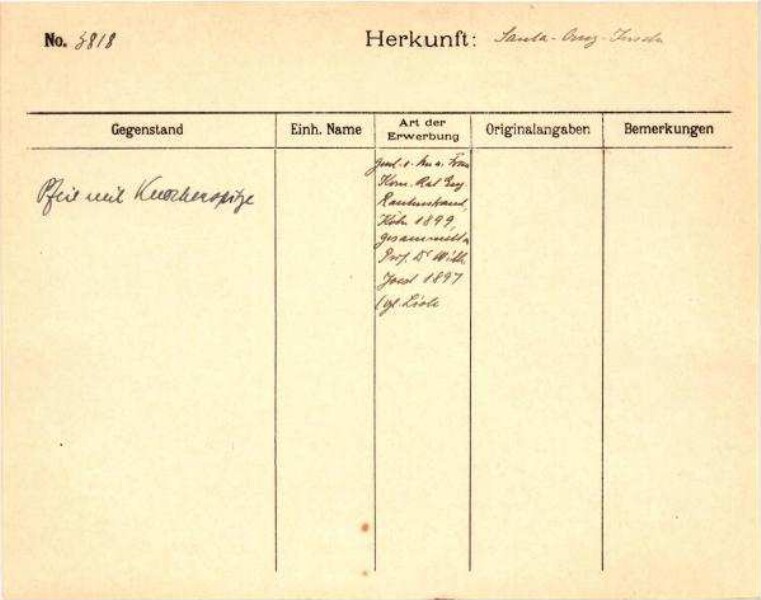 No. 3818 Herkunft: Santa-Cruz-Inseln
Gegenstand Einh. Name Art der Erwerbung Originalangaben Bemerkungen
Pfeil mit Knochenspitze
Gesch. v. Frau
Kom. Rat Eug
Rautenstrauch,
Köln 1899,
gesammelt v
Prof. Dr Wilh.
Joest 1897
(vgl. Liste